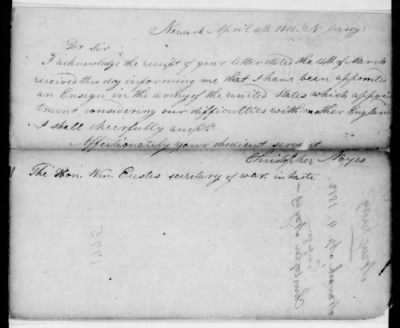 Newark April 4th 1812. N Jersey
Dr Sir
I acknowledge the receipt of your letter dated the 14th of March
received this day informing me that I have been appointed
an Ensign in the army of the united states which appoint
tment considering our difficulties with mother England
I shall cheerfully accept.
Affectionately your obedient serv't
Christopher Noyes
The Hon. Wm. Eustes secretary of war in haste